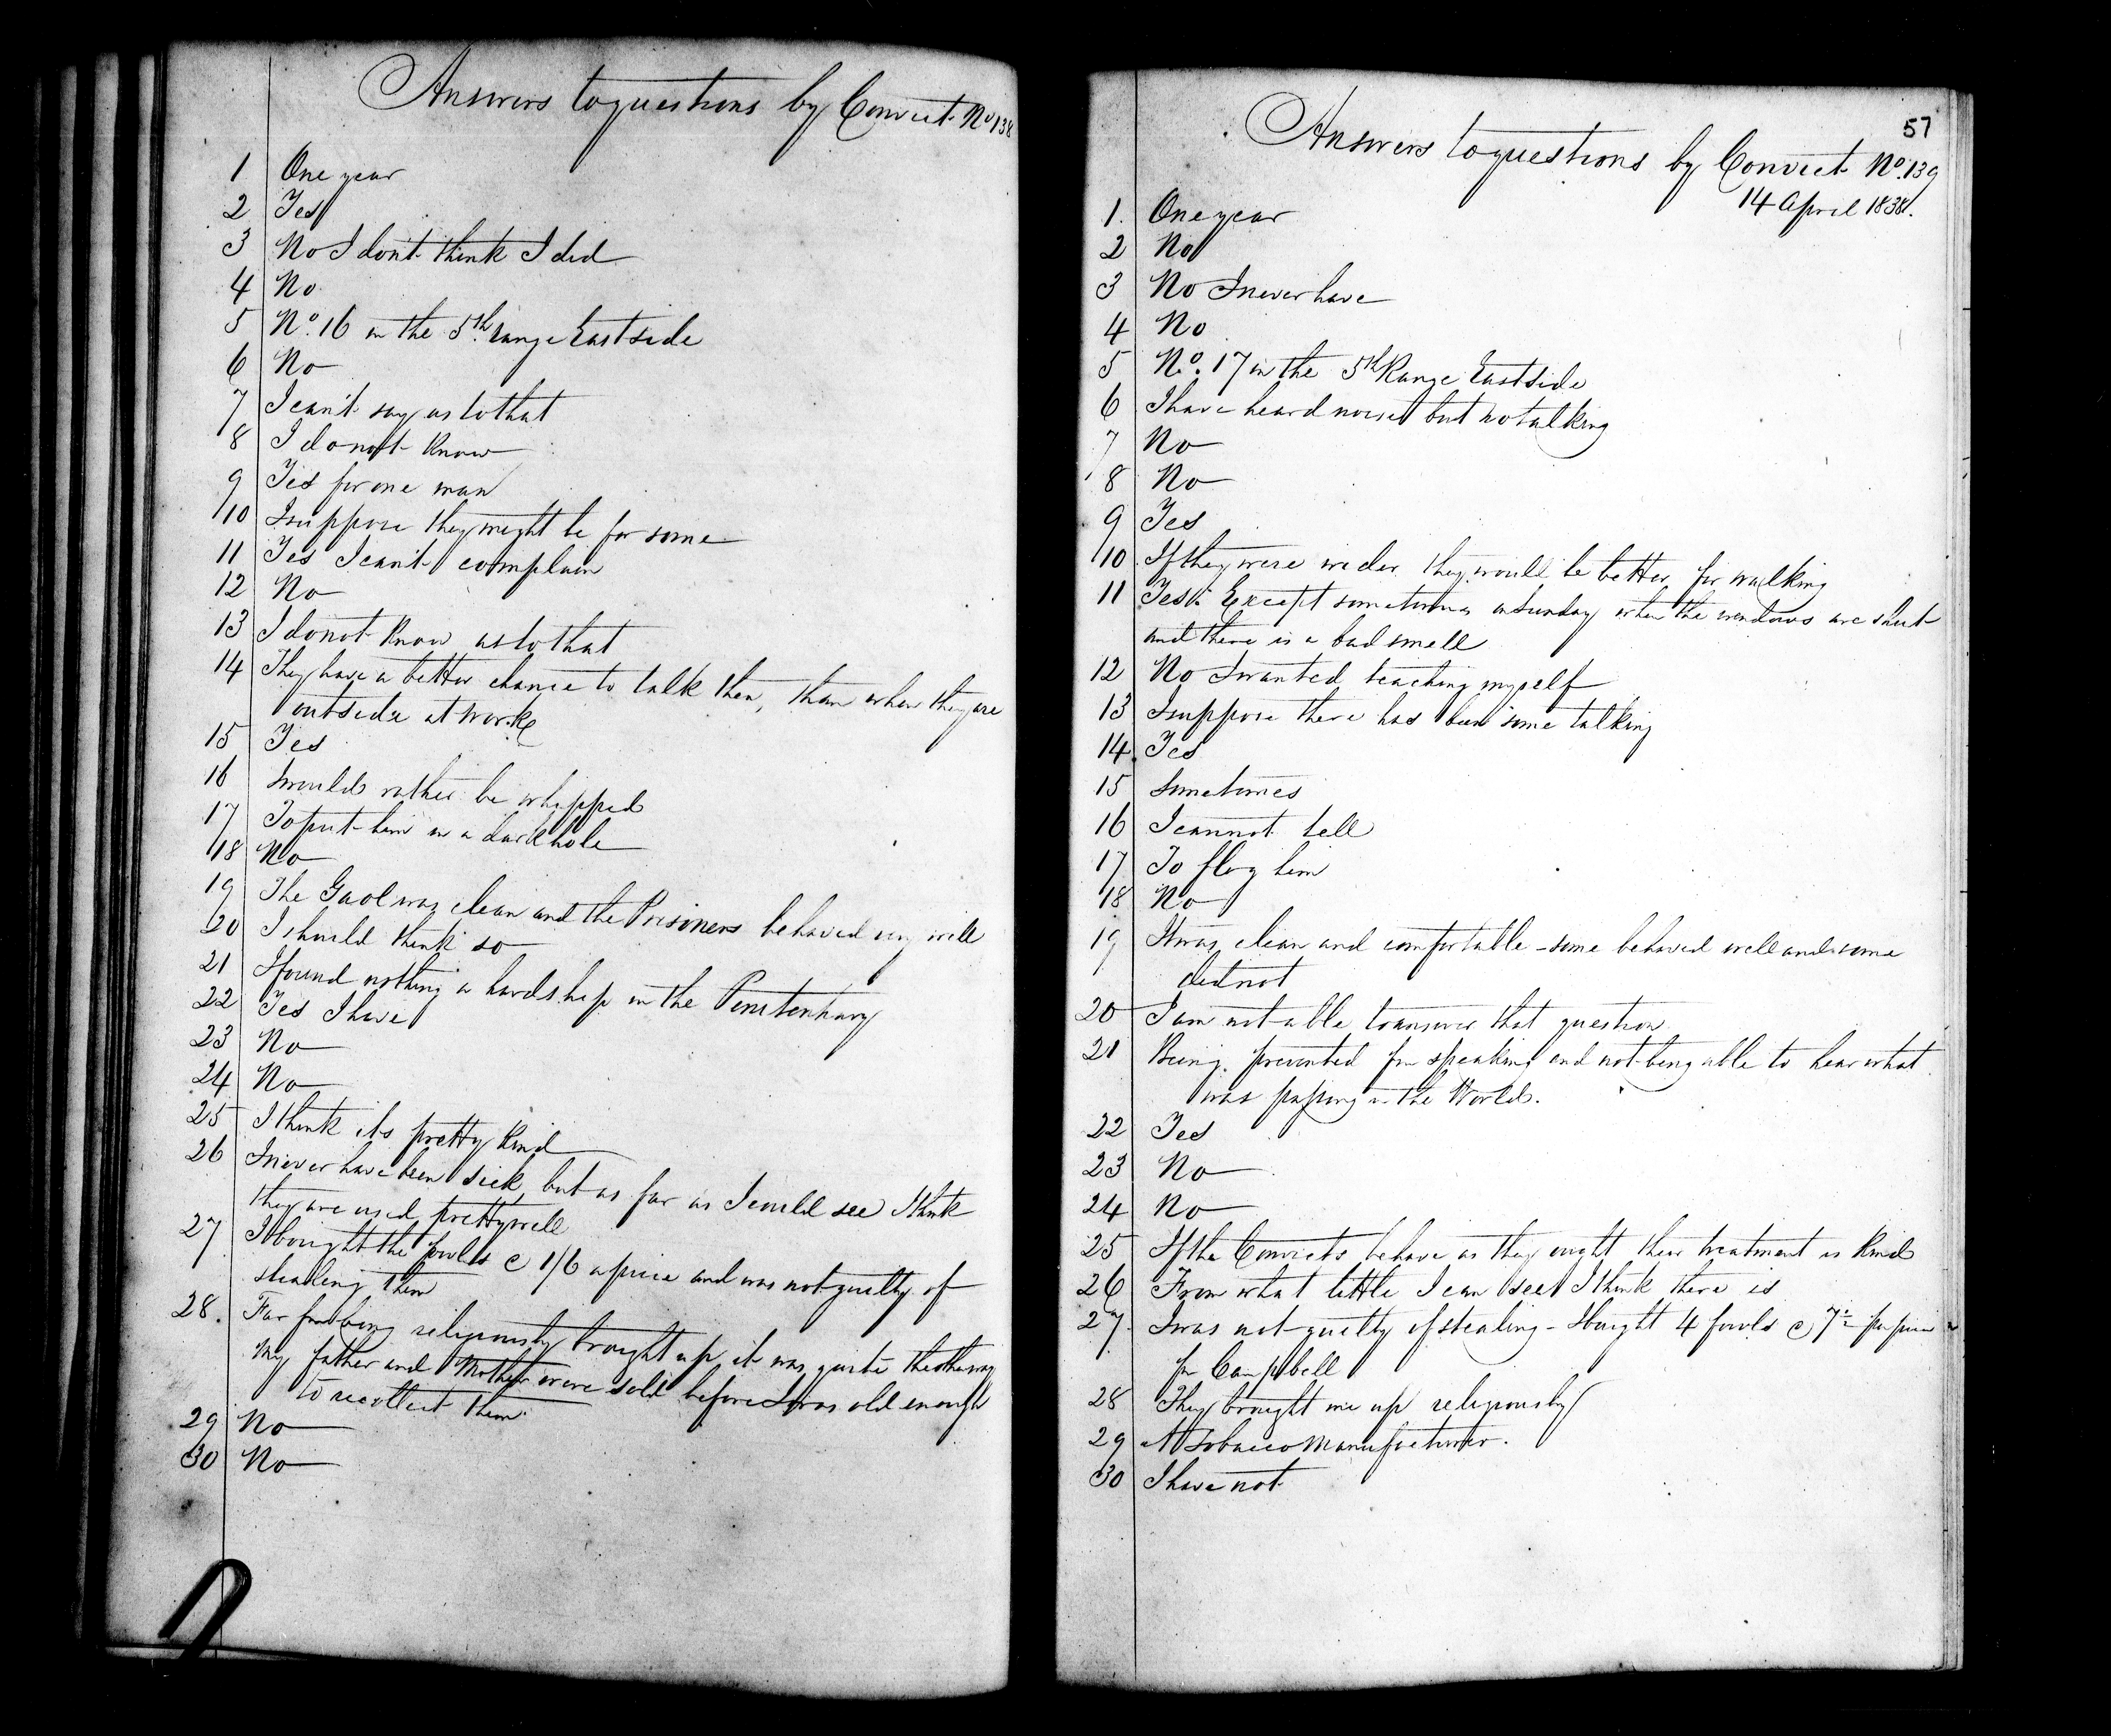 Answers to questions by Convict No 138
1 One year
2 Yes
3 No I dont think I did
4 No
5 No. 16 in the 5th range East side
6 No
7 I can't say as to that
8 I do not know
9 Yes for one man
10 I suppose they might be for some
11 Yes I can't complain
12 No
13 I do not know as to that
14 They have a better chance to talk then, than when they are
outside at work
15 Yes
16 I would rather be whipped
17 To put him in a dark hole
18 No
19 The Gaol was clean and the Prisoners behaved very well
20 I should think so
21 I found nothing a hardship in the Penitentiary
22 Yes I have
23 No
24 No
25 I think its pretty kind
26 I never have been sick but as far as I could see I think
they are used pretty well
27 I bought the fowls @ 1/6 apiece and was not guilty of
stealing them
28. Far from being religiously brought up it was quite the other way
My father and Mother were sold before I was old enough
to recollect them.
29 No
30 No
57
Answers to questions by Convict No. 139
14 April 1838.
1. One year
2 No
3 No I never have
4 No
5 No. 17 in the 5th Range East side
6 I have heard noises but no talking
7 No
8 No
9 Yes
10 If they were wider they would be better for walking
11 Yes. Except sometimes on Sunday when the windows are shut
and there is a bad smell
12 No I wanted teaching myself
13 I suppose there has been some talking
14. Yes
15 Sometimes
16 I cannot tell
17 To flog him
18 No
19 It was clean and comfortable - some behaved well and some
did not
20 I am not able to answer that question
21 Being prevented fm speaking and not being able to hear what
was passing in the World.
22 Yes
23 No
24 No
25 If the Convicts behave as they ought their treatment is kind
26 From what little I can see I think there is
27. I was not guilty of stealing - I bought 4 fowls @ 7d per piece
fm Campbell
28 They brought me up religiously
29 A Tobacco Manufacturer.
30 I have not.